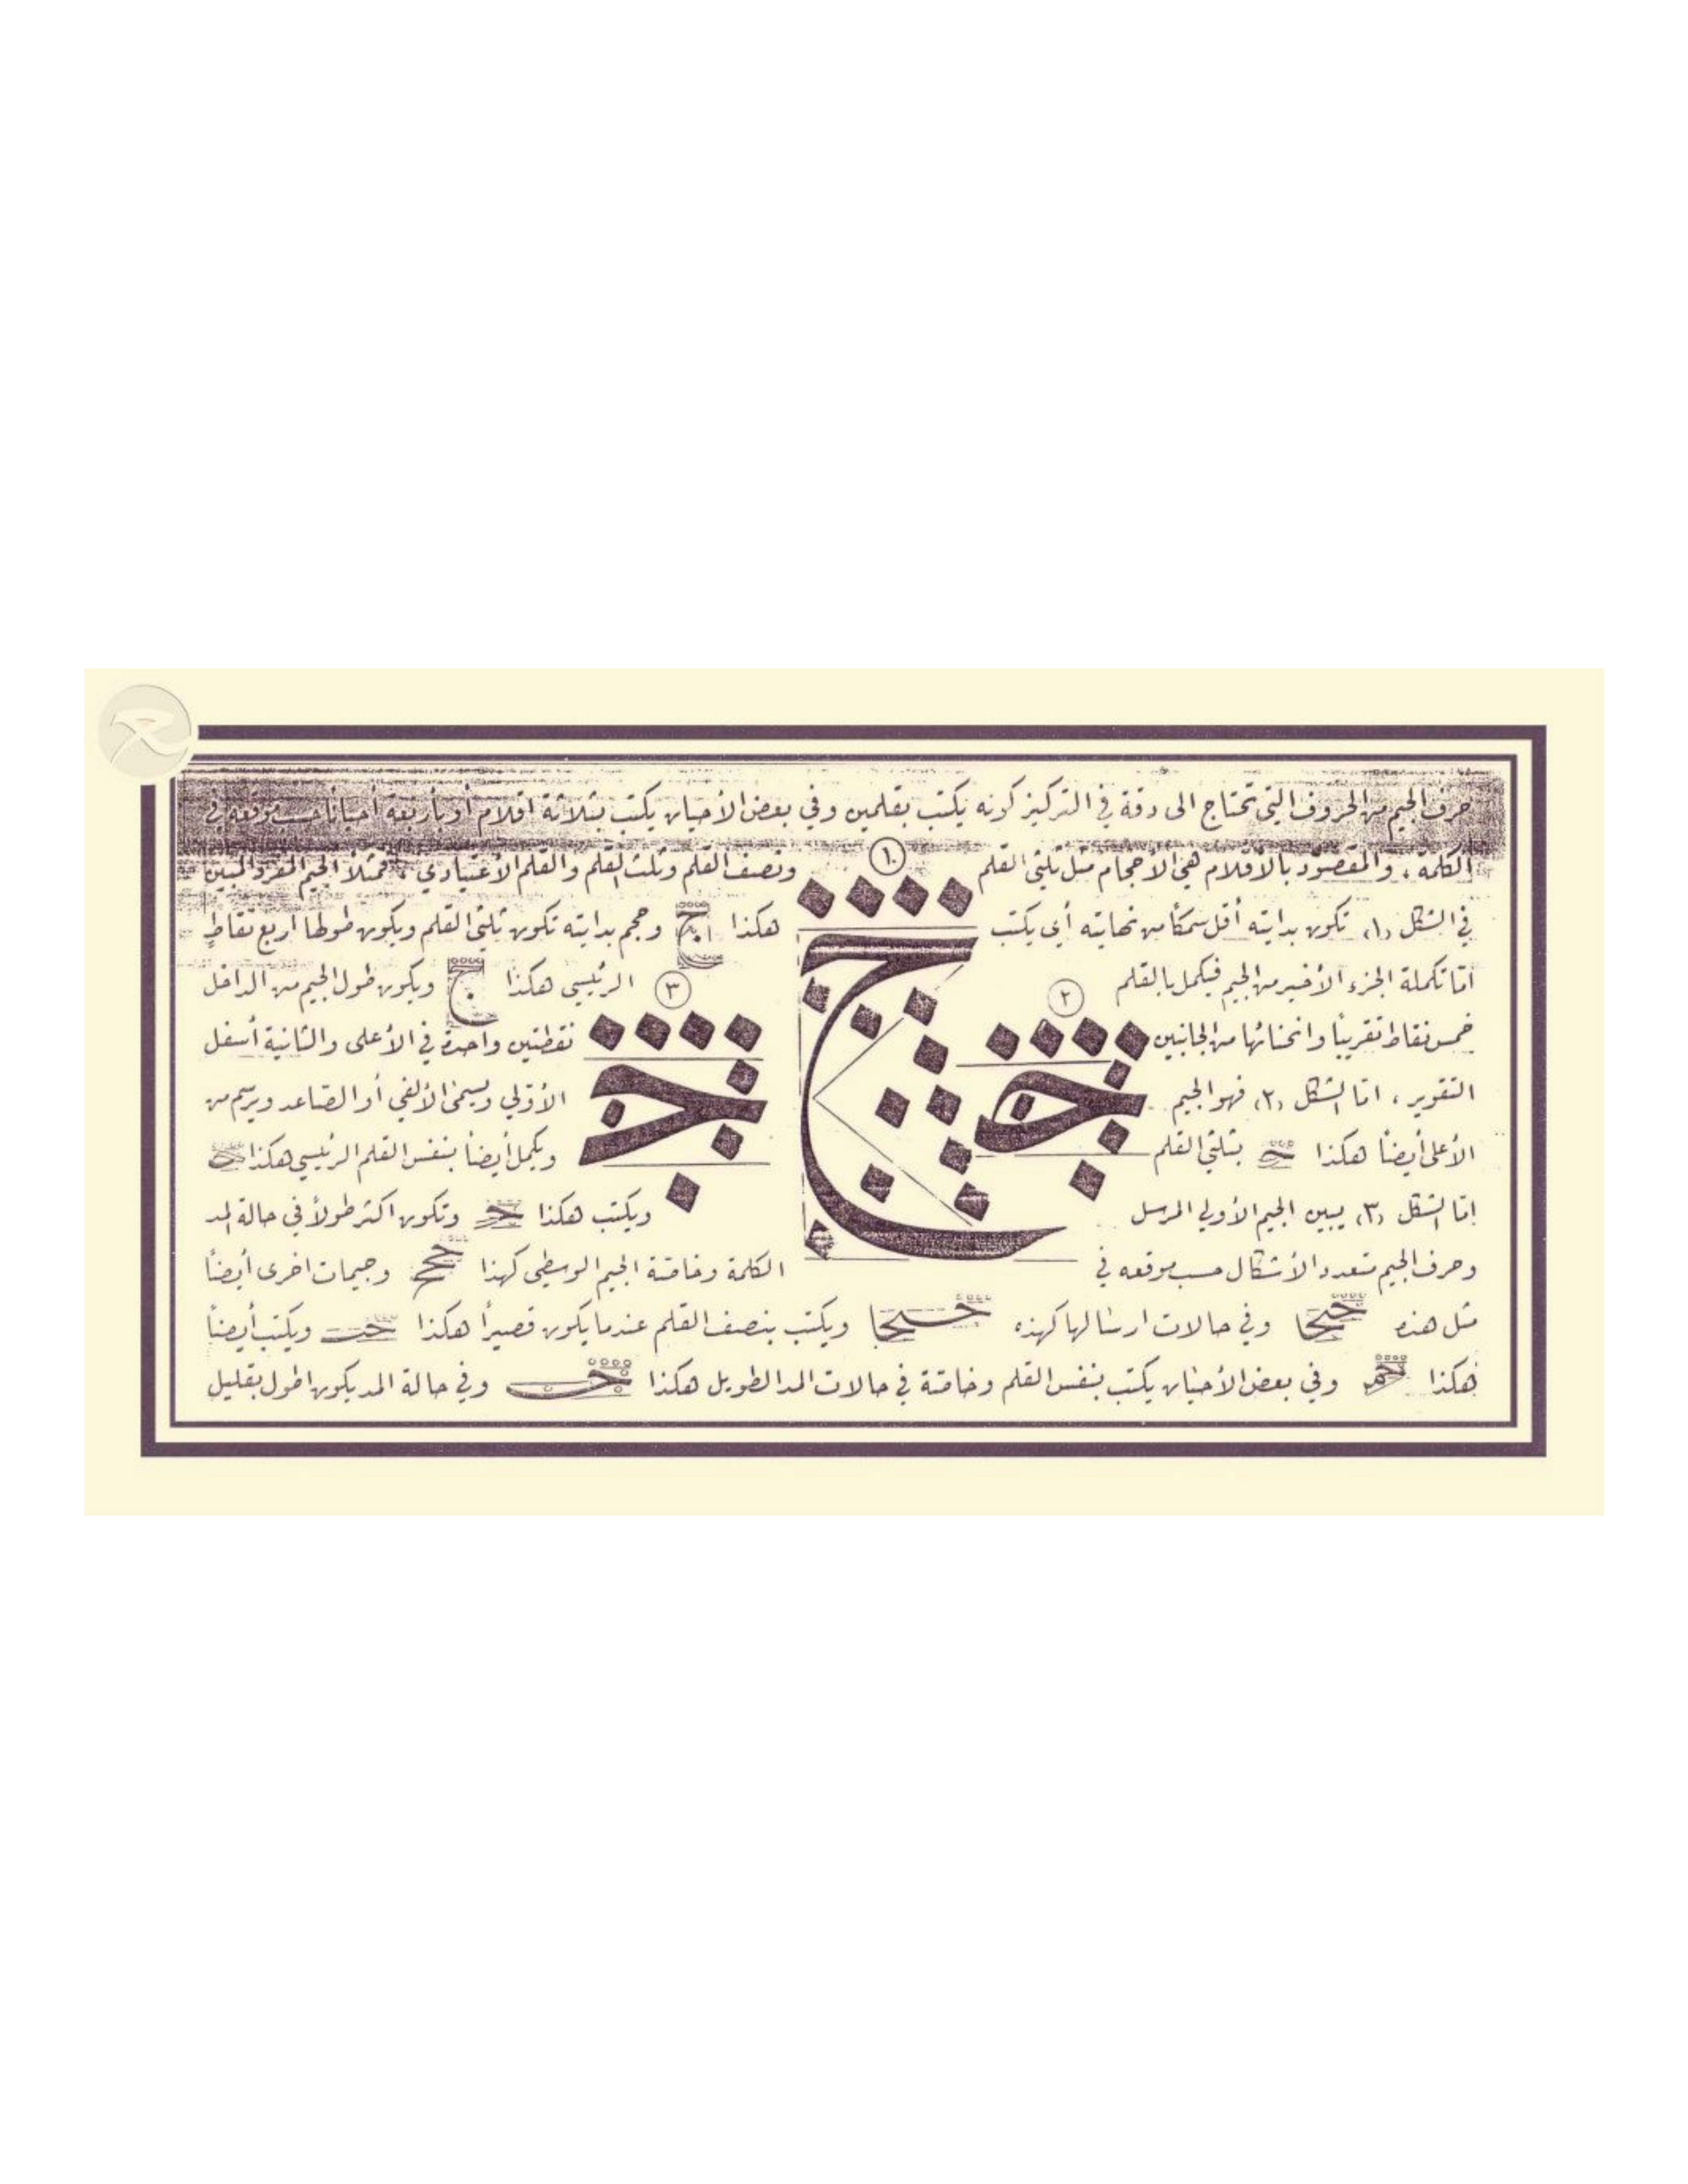 حرف الجيم من الحروف التي تحتاج الى دقة في التركيز كونه يكتب بقلمين وفي بعض الأحيان يكتب بثلاثة اقلام أو بأربعة أحياناً حسب موقعه في
الكلمة ، والمقصود بالأقلام هي الأحجام مثل ثلثي القلم ١ ونصف القلم وثلث القلم والقلم الأعتيادي ، فمثلاً الجيم المفرد المبين
في الشكل (١) تكون بدايته أقل سمكاً من نهايته أي يكتب هكذا ج وحجم بدايته تكون ثلثي القلم ويكون طولها اربع نقاط
أمّا تكملة الجزء الأخير من الجيم فيكمل بالقلم ٢ ٣ الرئيسي هكذا ج ويكون طول الجيم من الداخل
خمس نقاط تقريباً وانحنائها من الجانبين نقطتين واحدة في الأعلى والثانية أسفل
التقوير ، امّا الشكل (٢) فهو الجيم الأوّلي ويسمى الألفي أو الصاعد ويرسم من
الأعلى أيضاً هكذا بثلثي القلم ويكمل أيضاً بنفس القلم الرئيسي هكذا
امّا الشكل (٣) يبين الجيم الأولي المرسل ويكتب هكذا وتكون اكثر طولاً في حالة المد
وحرف الجيم متعدد الأشكال حسب موقعه في الكلمة وخاصة الجيم الوسطى كهذا وجيمات اخرى أيضاً
مثل هذه وفي حالات ارسالها كهذه ويكتب بنصف القلم عندما يكون قصيراً هكذا ويكتب أيضاً
هكذا وفي بعض الأحيان يكتب بنفس القلم وخاصة في حالات المد الطويل هكذا وفي حالة المد يكون اطول بقليل